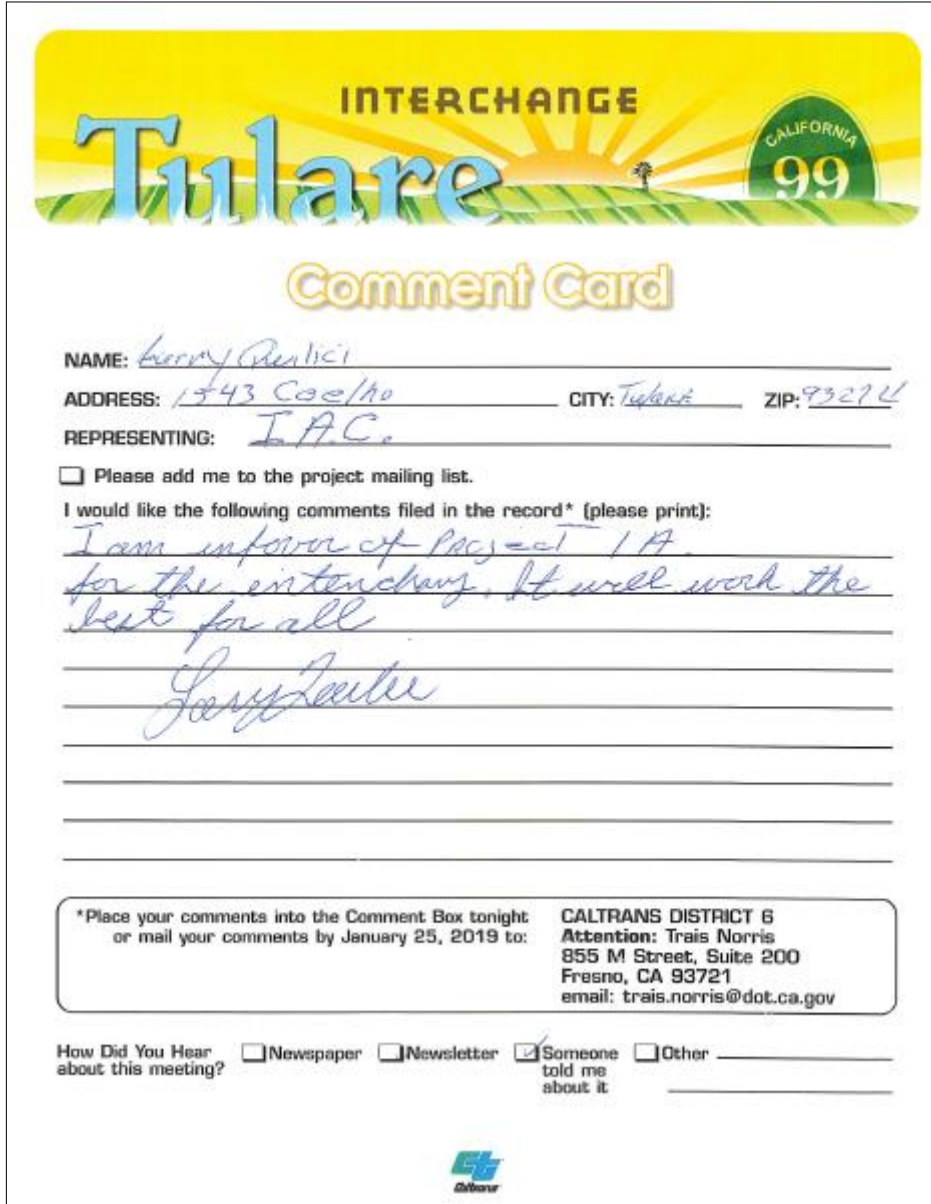 INTERCHANGE
Tulare
CALIFORNIA
99
Comment Card
NAME: Larry
ADDRESS: 1543 Coelho CITY: Tulare ZIP: 93274
REPRESENTING: I.A.C.
Please add me to the project mailing list.
I would like the following comments filed in the record* (please print):
I am infavor of Project 1A.
for the interchang. It will work the
best for all
Larry
*Place your comments into the Comment Box tonight
or mail your comments by January 25, 2019 to:
CALTRANS DISTRICT 6
Attention: Trais Norris
855 M Street, Suite 200
Fresno, CA 93721
email: trais.norris@dot.ca.gov
How Did You Hear
about this meeting?
Newspaper Newsletter Someone
told me
about it
Other
Caltrans